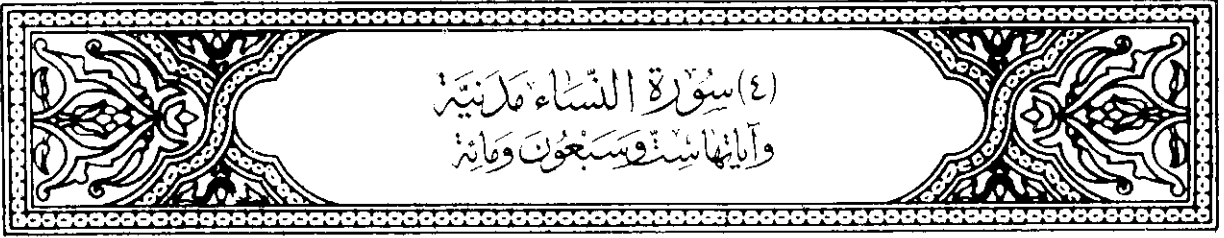 (٤) سُورَة النِّسَاء مَدَنيَّة
وَآيَاتهَا سِتّ وَسَبْعُونَ وَمَائة